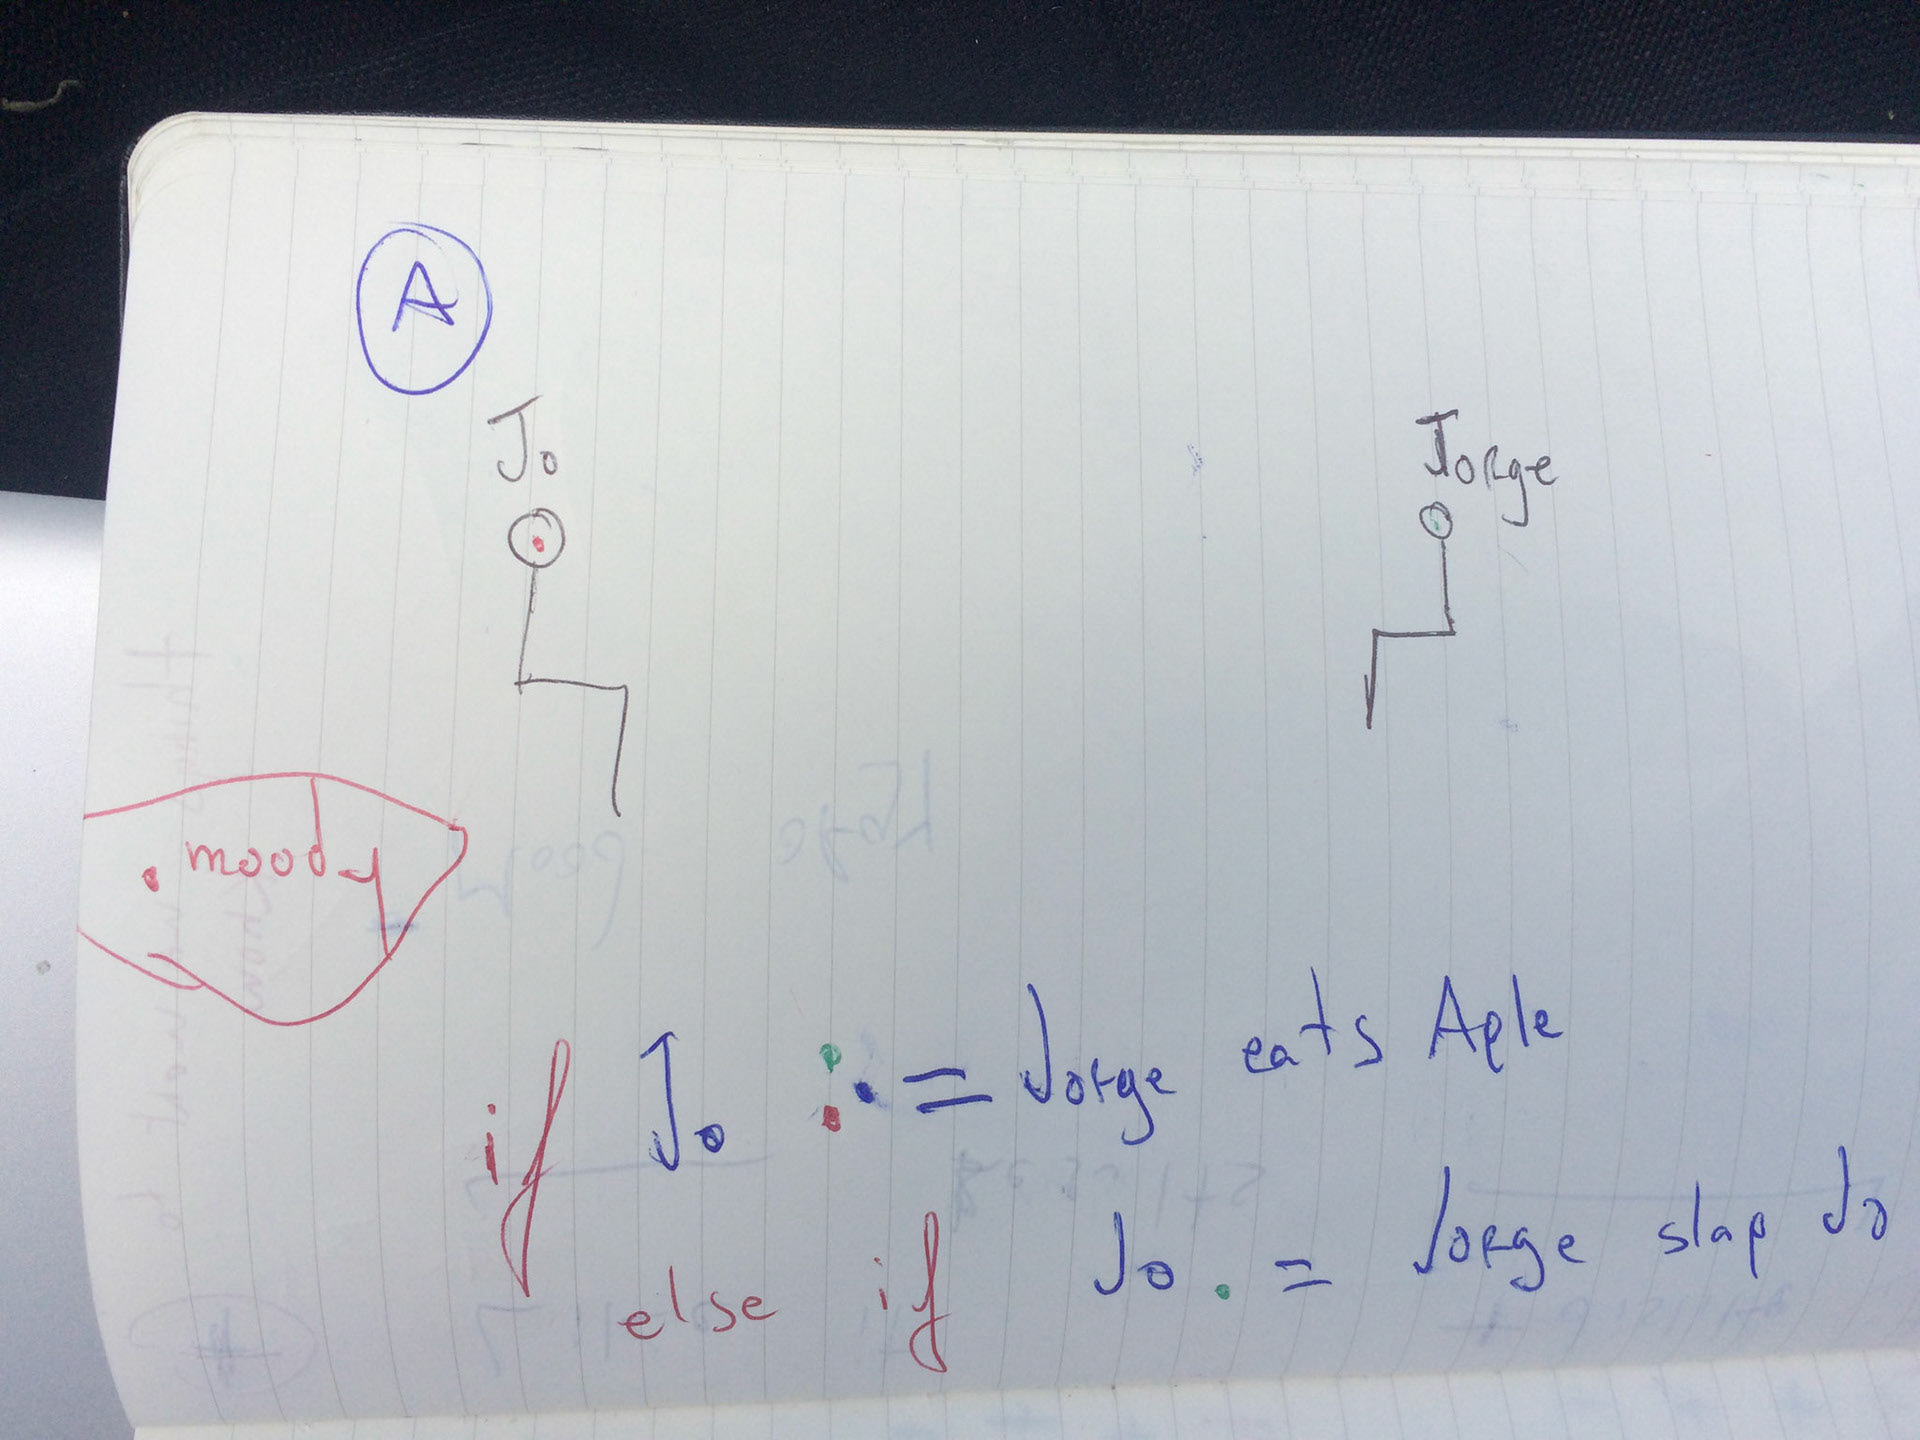 A
Jo
Jorge
. moody
if Jo :. = Jorge eats Aple
else if Jo . = Jorge slap Jo